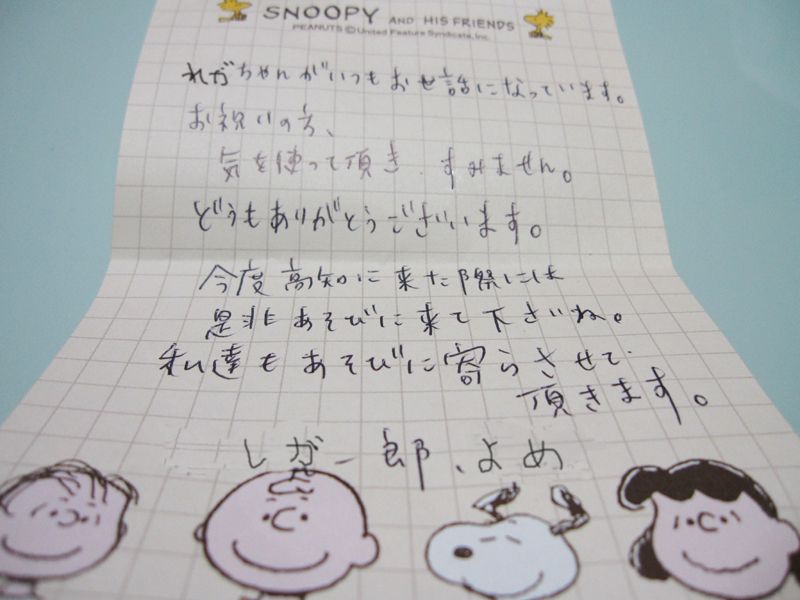 SNOOPY AND HIS FRIENDS
PEANUTS © United Feature Syndicate, Inc.
れがちゃんがいつもお世話になっています。
お祝いの方、
気を使って頂き、すみません。
どうもありがとうございます。
今度高知に来た際には
是非あそびに来て下さいね。
私達もあそびに寄らさせて
頂きます。
しが一郎、よめ